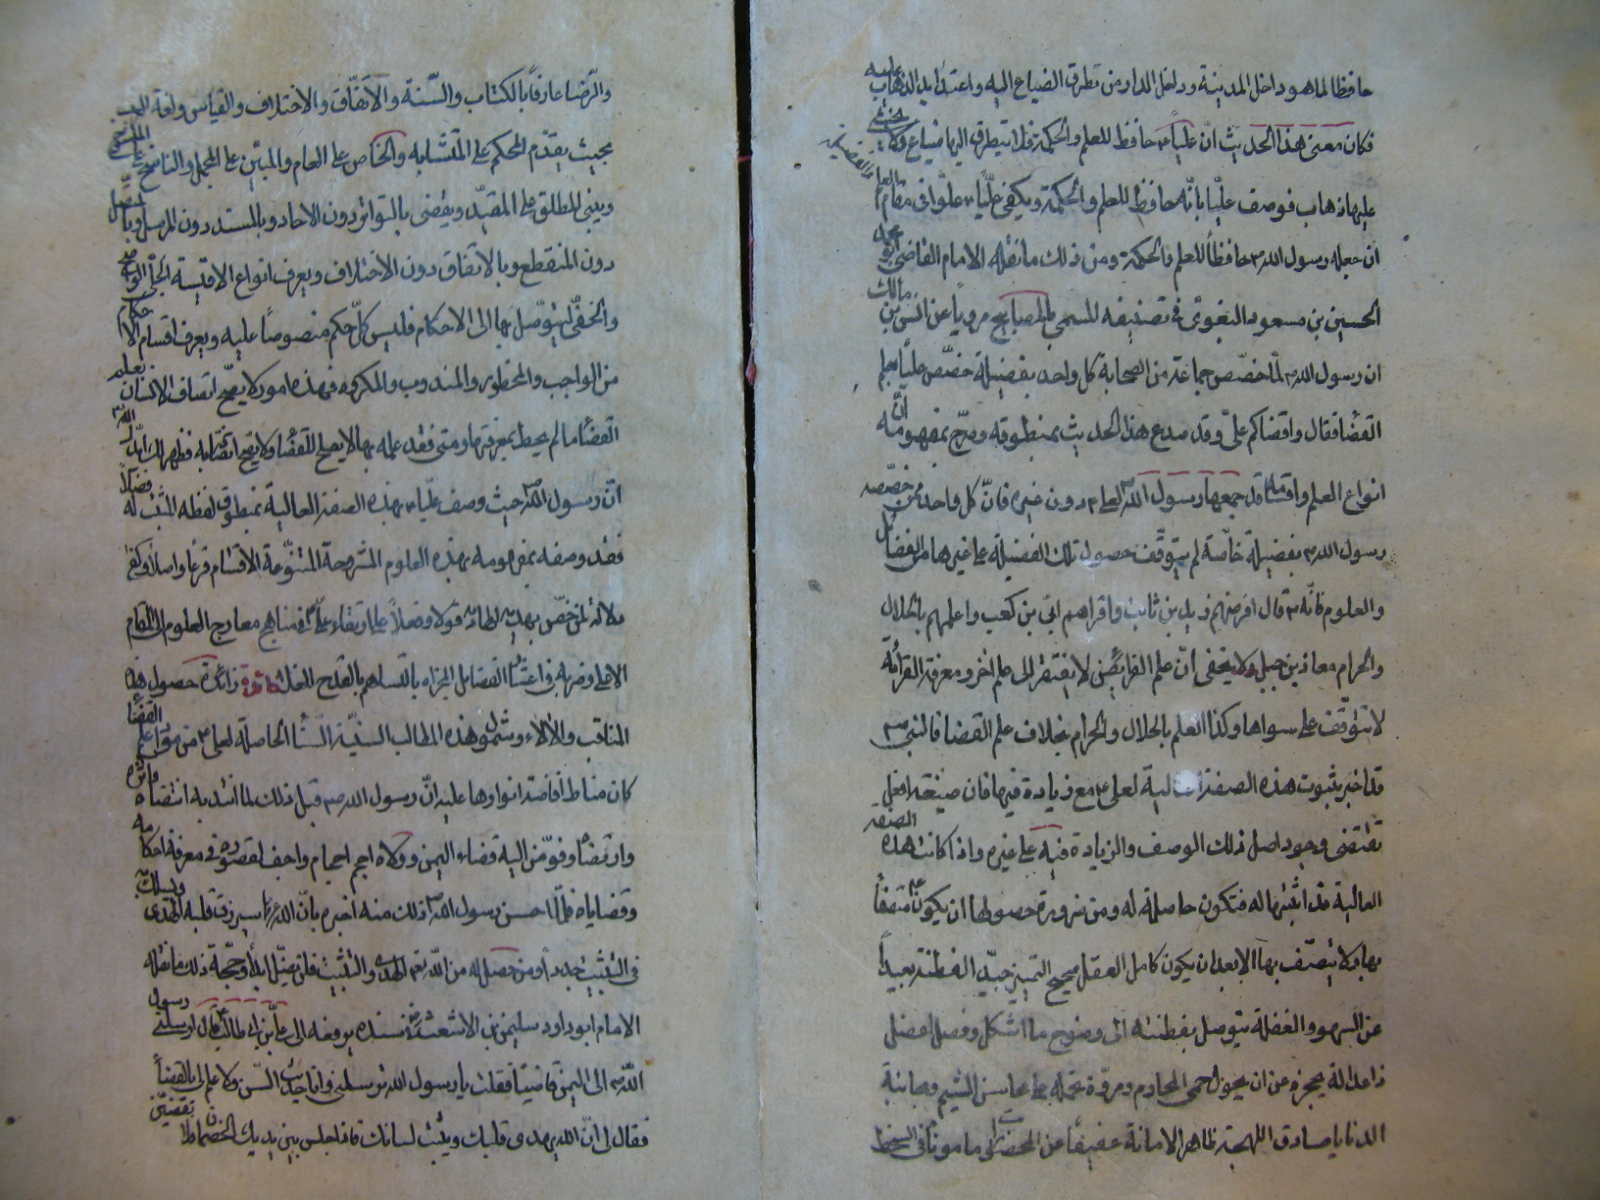 حافظا لما هو داخل المدينة وداخل الدار من تطرق الضياع اليه واعتداء يد الذهاب عليه
فكان معنى هذا الحديث انّ عليّاً ع حافظ للعلم والحكمة فلا يتطرق اليها ضياع ولا يخشى
عليها ذهاب فوصف عليّا بانّه حافظ للعلم والحكمة ويكفى عليّاً ع علوّا فى مقام العلم والفضيلة
ان جعله رسول الله ص حافظاً للعلم والحكمة ومن ذلك ما نقله الامام القاضى ابو محمد
الحسين بن مسعود البغوىّ فى تصنيفه المسمى بالمصابيح مروياً عن انس بن مالك
ان رسول الله ص لمّا خصّص جماعة من الصحابة كل واحد بفضيلة خصّص عليّاً بعلم
القضا فقال واقضاكم علىّ وقد صدع هذا الحديث بمنطوقه وصرّح بمفهومه انّ
انواع العلم واقسامه قد جمعها رسول الله ص لعلى ع دون غيره فانّ كل واحد ممن خصّصه
رسول الله ص بفضيلة خاصّة لم يتوقّف حصول تلك الفضيلة على غيرها من الفضائل
والعلوم فانّه ص قال افرضهم زيد بن ثابت واقراهم ابىّ بن كعب واعلمهم بالحلال
والحرام معاذ بن جبل ولا يخفى انّ علم الفرايض لا يفتقر الى علم اخر ومعرفة القرائة
لا يتوقّف على سواها وكذا العلم بالحلال والحرام بخلاف علم القضا فالنبى ص
قد اخبر بثبوت هذه الصفة العالية لعلى ع مع زيادة فيها فان صيغة افعل
تقتضى وجود اصل ذلك الوصف والزيادة فيه على غيره واذا كانت هذه الصفة
العالية قد اثبتها له فتكون حاصلة له ومن ضرورة حصولها ان يكون ع متصفاً
بها ولا يتصّف بها الا بعد ان يكون كامل العقل صحيح التميز جيّد الفطنة بعيداً
عن السهو والغفلة يتوصل بفطنته الى وضوح ما اشكل وفصل اعضل
ذا عدالة يحجزه عن ان يحول حمى المحارم ومروّة تحمله على محاسن الشيم ومجانبة
الدنايا صادق اللهجة ظاهر الامانة عفيفاً عن المحضورات مامونا فى السخط
والرّضا عارفاً بالكتاب والسّنة والاتفاق والاختلاف والقياس ولغة العرب
بحيث يقدّم المحكم على المتشابه والخاص على العام والمبيّن على المجمل والناسخ على المنسوخ
ويبنى المطلق على المقيّد ويقضى بالتواتر دون الاحاد وبالمسند دون المرسل وبالمتصل
دون المنقطع وبالاتفاق دون الاختلاف ويعرف انواع الاقيسة الجلّى والواضح
والخفىّ ليتوّصل بها الى الاحكام فليس كلّ حكم منصوصاً عليه ويعرف اقسام الاحكام
من الواجب والمحظور والمندوب والمكروه فهذه امور لا يصحّ اتصاف الانسان بعلم
القضا ما لم يحط بمعرفتها ومتى فقد علمه بها لا يصلح للقضا ولا يصحّ اتصافه به فظهر لك ايّدك الله
انّ رسول الله ص حيث وصف عليّاً ع بهذه الصفة العالية بمنطوق لفظه المثبت له فضلاً
فقد وصفه بمفهومه بهذه العلوم المشروحة المتنوّعة الاقسام فرعًا واصلاً وكفى
دلالة لمن خصّ بهديّة الهداية قولا وفعلاً على ارتقاء علىّ ع فى مناهج معارج العلوم الى المقام
الاعلى وضربه فى اعشار الفضايل المجزاه بالتساهم بالقدح المعلّى فائدة زائدة حصول هذه
المناقب والالاء وشمول هذه المطالب السنيّة السّنا الحاصلة لعلى ع من موادّ علم القضا
كان مناط افاضة انوارها عليه انّ رسول الله ص قبل ذلك لما انتدبه انتضاه واثره
وارتضاه وفوّض اليه قضاء اليمن وولاه احجم احجام واجف لقصوره فى معرفة احكامه
وقضاياه فلمّا احسن رسول الله ص ذلك منه اخبره بانّ الله عز وجل سيرزق قلبه الهدى ويسلك به
فى التثبيت جدداً ومن حصل له من الله نعم الهدى والتثبيت فلن يضلّ ابداً وحجّة ذلك ما نقله
الامام ابو داود سليمن بن الاشعث فى مسنده يرفعه الى علىّ بن ابى طالب ع قال ارسلنى رسول
الله ص الى اليمن قاضياً فقلت يا رسول الله ترسلنى وانا حديث السّن ولا علم لى بالقضاً
فقال لى انّ الله يهدى قلبك ويثبت لسانك فاذا جلس بين يديك الخصمان فلا تقضينّ